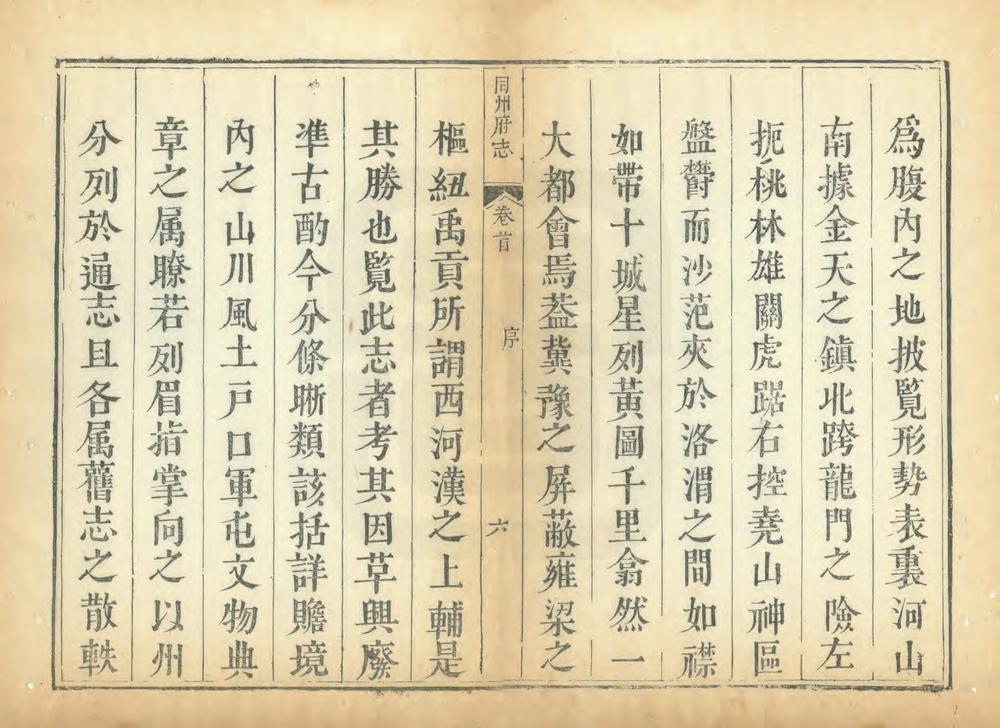 為腹內之地披覧形勢表裏河山
南據金天之鎮北跨龍門之險左
扼桃林雄關虎踞右控堯山神區
盤欝而沙范夾於洛渭之間如襟
如帶十城星列黃圖千里翕然一
大都會焉葢冀豫之屏蔽雍梁之
同州府志
卷首
序
六
樞紐禹貢所謂西河漢之上輔是
其勝也覧此志者考其因革興廢
凖古酌今分條晰類該括詳贍境
內之山川風土戸口軍屯文物典
章之属瞭若列眉指掌向之以州
分列於通志且各属舊志之散軼